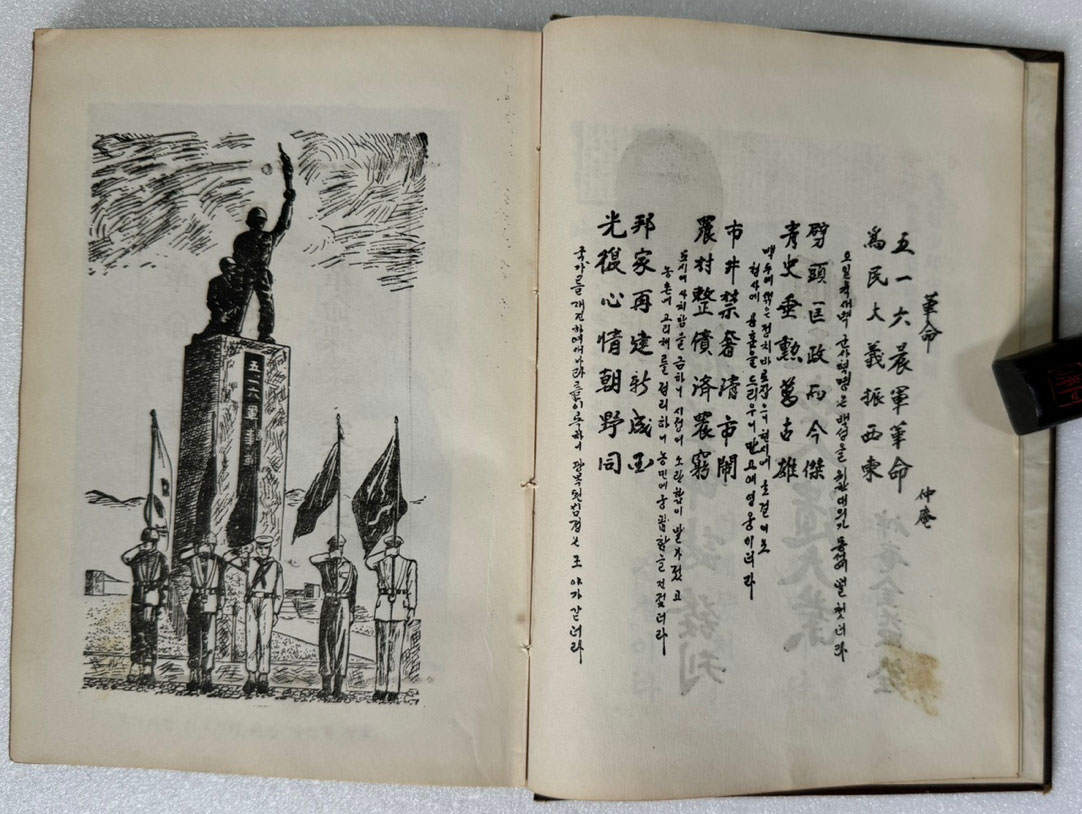 五一六軍事革命
革命
仲庵
五一六晨軍革命
爲民大義振西東
오일륙새벽 군사혁명은 백성을 위한 대의가 동서에 떨첫더라
劈頭匡政而今傑
靑史垂勳萬古雄
벽두에 썩은 정치 바로잡으니 현시에 호걸이오
청사에 공훈을 드리우니 만고에 영웅이더라
市井禁奢淸市鬧
農村整債済農窮
도시에 사치함을 금하니 시정에 소란함이 맑아졌고
농촌에 고리채를 정리하니 농민에 궁핍함을 건젔더라
邦家再建新成
光復心情朝野同
국가를 재건하여 새나라를 이룩하니 광복된 심정은 조야가 같더라